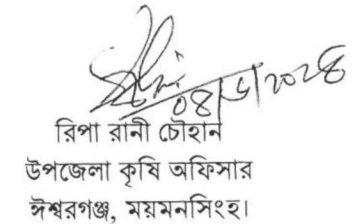 ০৪/৬/২০২৪
রিপা রানী চৌহান
উপজেলা কৃষি অফিসার
ঈশ্বরগঞ্জ, ময়মনসিংহ।